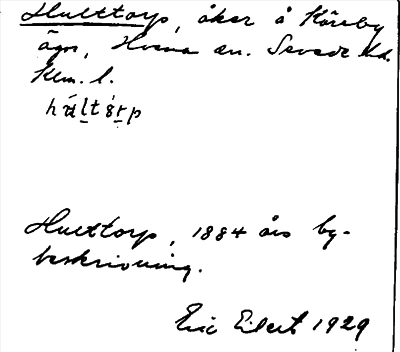 Hulttorp, åker å Köreby
ägor, Hvena sn. Sevede hd.
Klm. l.
hultorp
Hulttorp, 1884 års by-
beskrivning.
Eric Eilert 1929